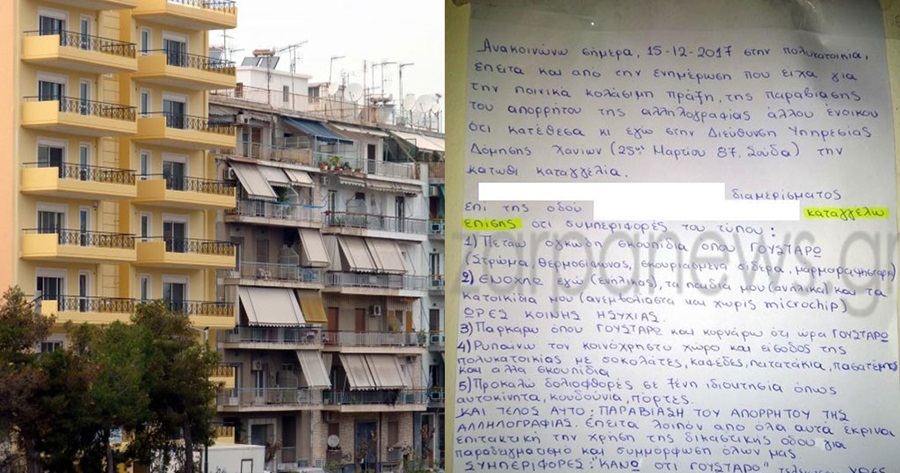 Ανακοινώνω σήμερα, 15-12-2017 στην πολυκατοικία,
έπειτα και απο την ενημέρωση που είχα για
την ποινικά κολάσιμη πράξη, της παραβίασης
του απορρήτου της αλληλογραφίας άλλου ένοικου
ότι κατέθεσα κι εγώ στην Διεύθυνση Υπηρεσίας
Δόμησης Χανίων (25ης Μαρτίου 87, Σούδα) την
κάτωθι καταγγελία.
διαμερίσματος
επί της οδού καταγγέλω
επίσης ότι συμπεριφορές του τύπου:
1) Πετάω ογκώδη σκουπίδια όπου ΓΟΥΣΤΑΡΩ
(Στρώμα, θερμοσίφωνας, σκουριασμένα σίδερα,
2) Ενοχλώ εγώ (ενήλικας), τα παιδιά μου (ανήλικα) και τα
κατοικίδια μου (ανεμβολίαστα και χωρίς microchip)
ΩΡΕΣ ΚΟΙΝΗΣ ΗΣΥΧΙΑΣ.
3) Παρκάρω όπου ΓΟΥΣΤΑΡΩ και κορνάρω ότι ώρα ΓΟΥΣΤΑΡΩ
4) Ρυπαίνω τον κοινόχρηστο χώρο και είσοδος της
πολυκατοικίας με σοκολάτες, καφέδες, πατατάκια, πασατέμπο
και άλλα σκουπίδια
5) Προκαλώ δολιοφθορές σε ξένη ιδιοκτησία όπως
αυτοκίνητα, κουδούνια, πόρτες.
ΚΑΙ ΤΕΛΟΣ ΑΥΤΟ: ΠΑΡΑΒΙΑΣΗ ΤΟΥ ΑΠΟΡΡΗΤΟΥ ΤΗΣ
ΑΛΛΗΛΟΓΡΑΦΙΑΣ. Έπειτα λοιπόν απο όλα αυτά έκρινα
επιτακτική την χρήση της δικαστικής οδού για
παραδειγματισμό και συμμόρφωση όλων μας.
ΣΥΜΠΕΡΙΦΟΡΕΣ: ΚΑΝΩ ότι ΓΟΥΣΤΑΡΩ
zarpanews.gr